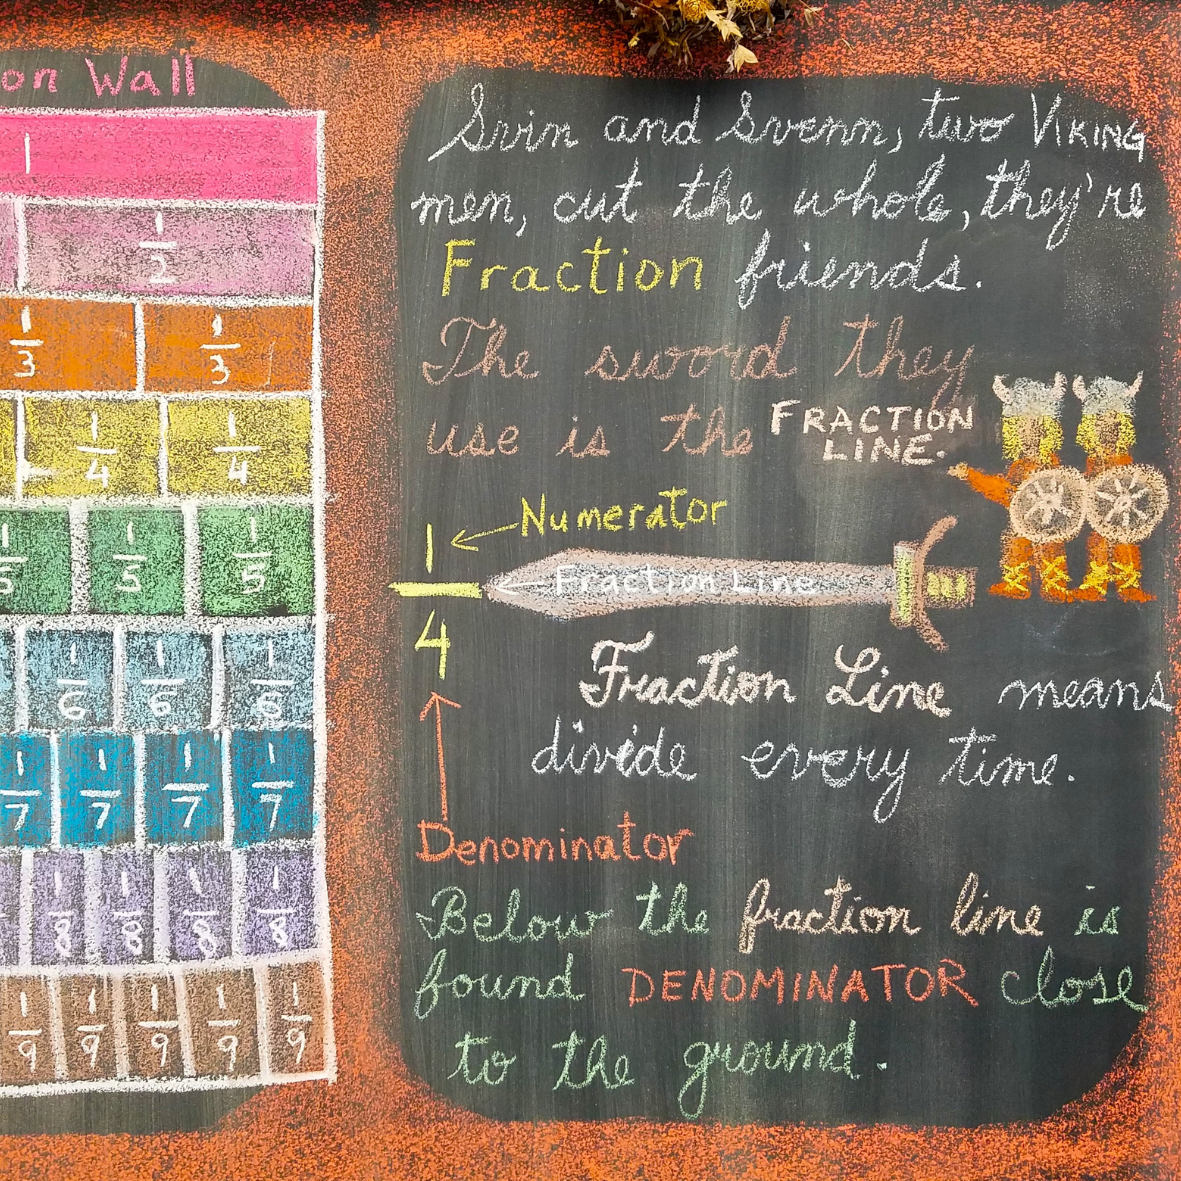 on Wall
1
1/2
1/3 1/3
1/4 1/4
1/5 1/5 1/5
1/6 1/6 1/6
1/7 1/7 1/7 1/7
1/8 1/8 1/8 1/8
1/9 1/9 1/9 1/9 1/9
Svin and Svenn, two VIKING
men, cut the whole, they're
Fraction friends.
The sword they
use is the FRACTION
LINE.
1 Numerator
Fraction Line
4
Fraction Line means
divide every time.
Denominator
Below the fraction line is
found DENOMINATOR close
to the ground.